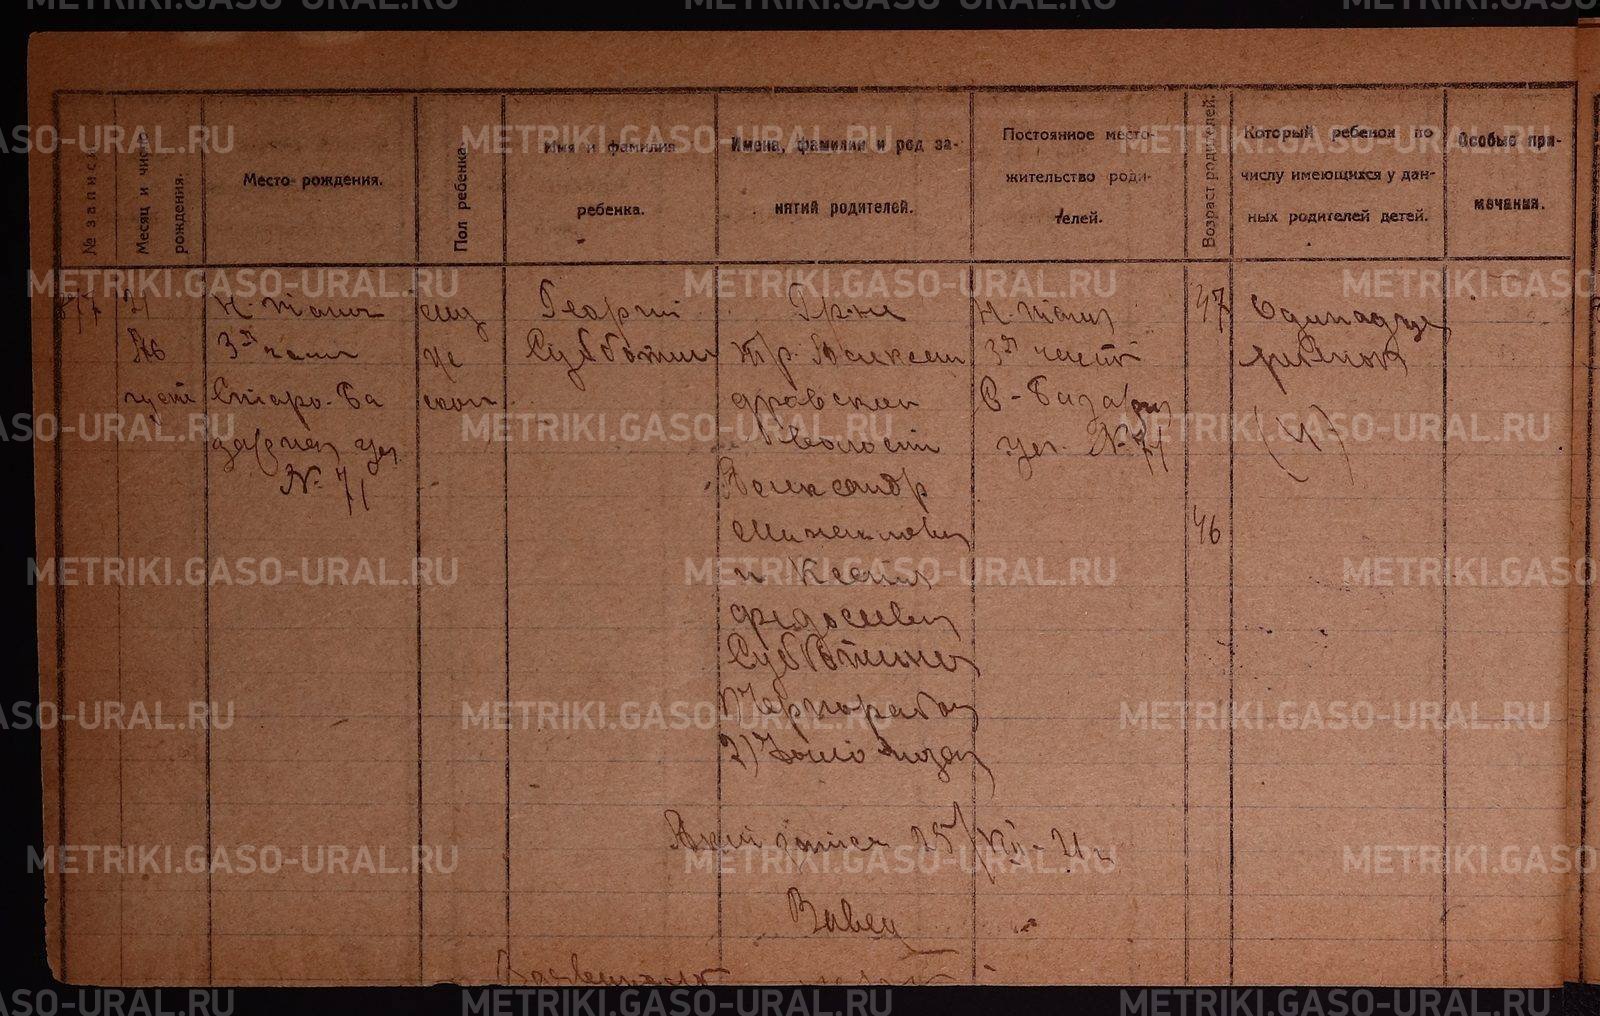 № записи
Месяц и число рождения.
Место-рождения.
Пол ребенка.
Имя и фамилия
ребенка.
Имена, фамилии и род за-
нятий родителей.
Постоянное место-
жительство роди-
телей.
Возраст родителей.
Который ребенок по
числу имеющихся у дан-
ных родителей детей.
Особые при-
мечания.
877
21
Ав
густ
Н-Тагил
3я часть
Старо-Ба
зарная ул
№ 71
муж
ской
Георгий
Субботин
Гр-не
Алексан
дровской
волости
Александр
и Ксения
Федосеевна
Субботины
Чернорабоч
2)
Н-Тагил
3я часть
С-Базарн
ул. № 71
47
46
Одинадца
(11)
Акт записан 25/
METRIKI.GASO-URAL.RU